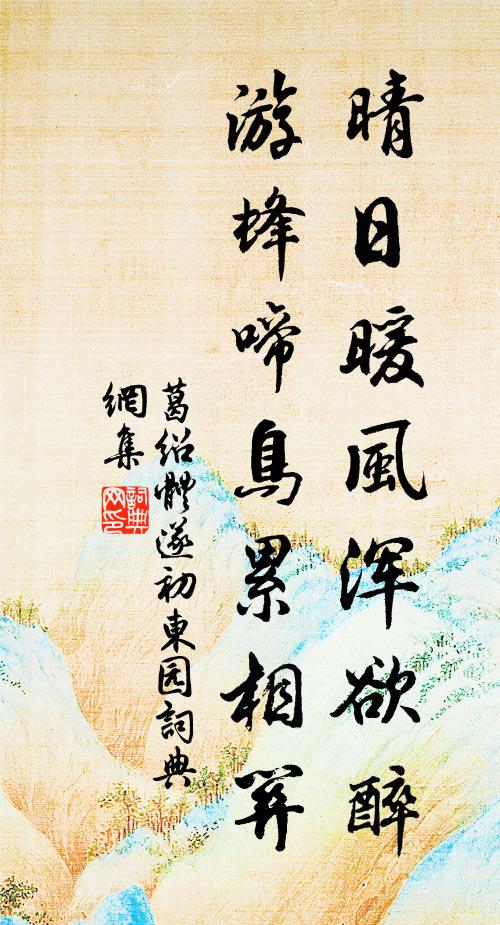 晴日暖風浑欲醉
游蜂啼鳥累相關
葛紹體遂初東园詞典
網集
詞典
网印